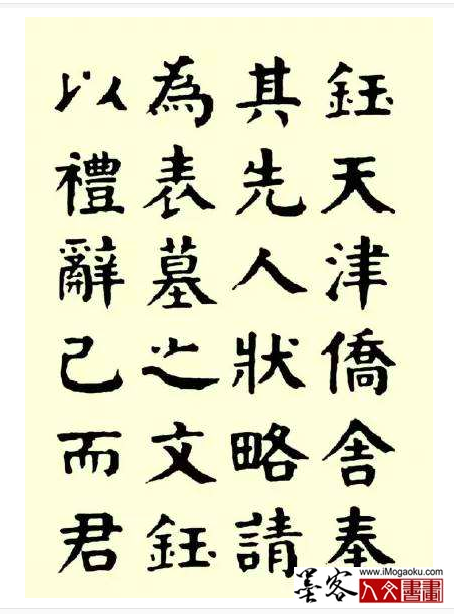 鈺天津僑舍奉
其先人狀略請
為表墓之文鈺
以禮辭己而君
www.iMogaoku.com
墨客
人文書畫